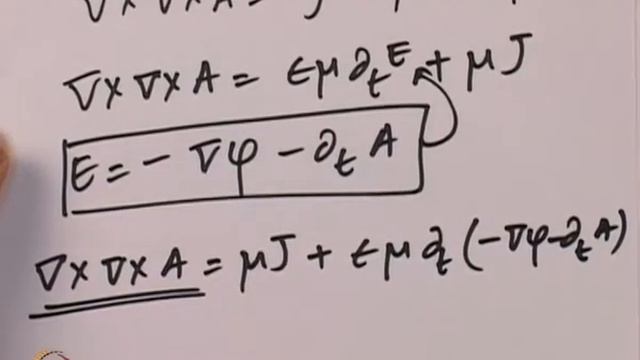 ∇×∇×A = ϵμ∂ₜE + μJ
E = − ∇φ − ∂ₜA
∇×∇×A = μJ + ϵμ∂ₜ(−∇φ−∂ₜA)